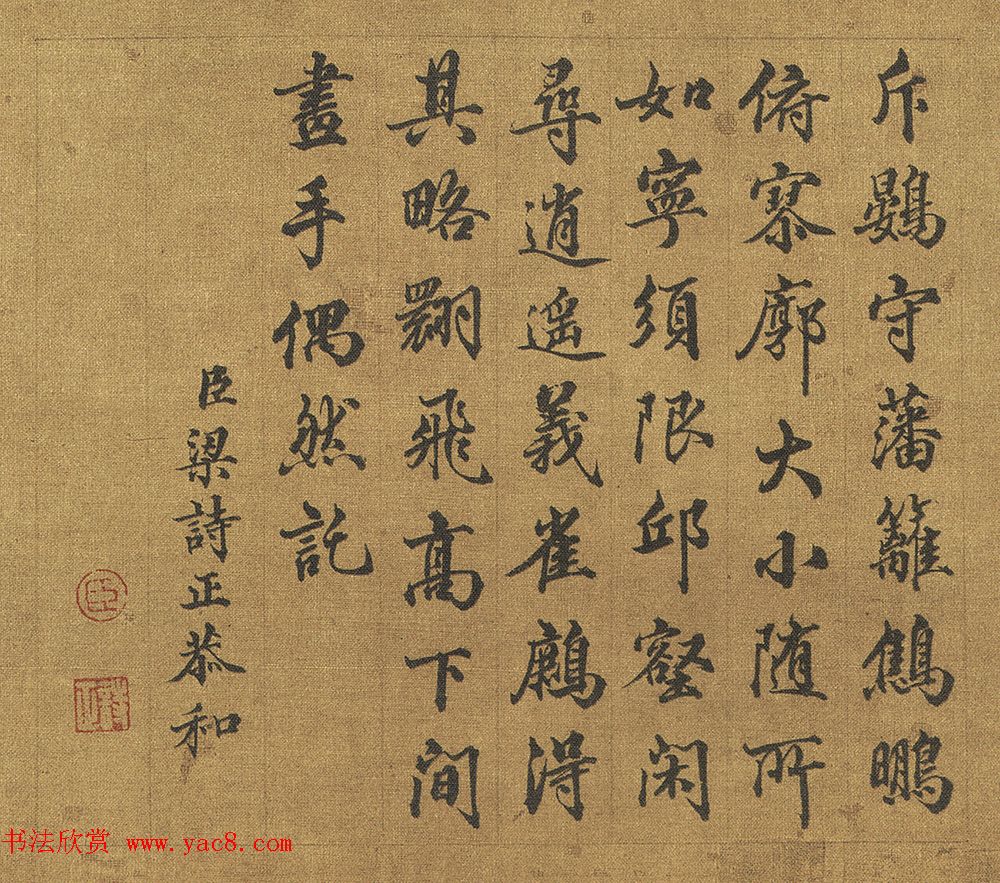 斥鷃守藩籬鷦鵬
俯寥廓大小随所
如寧須限邱壑閑
尋逍遥義雀得
其略翾飛高下間
畫手偶然託
臣梁詩正恭和
臣
书法欣赏 www.yac8.com